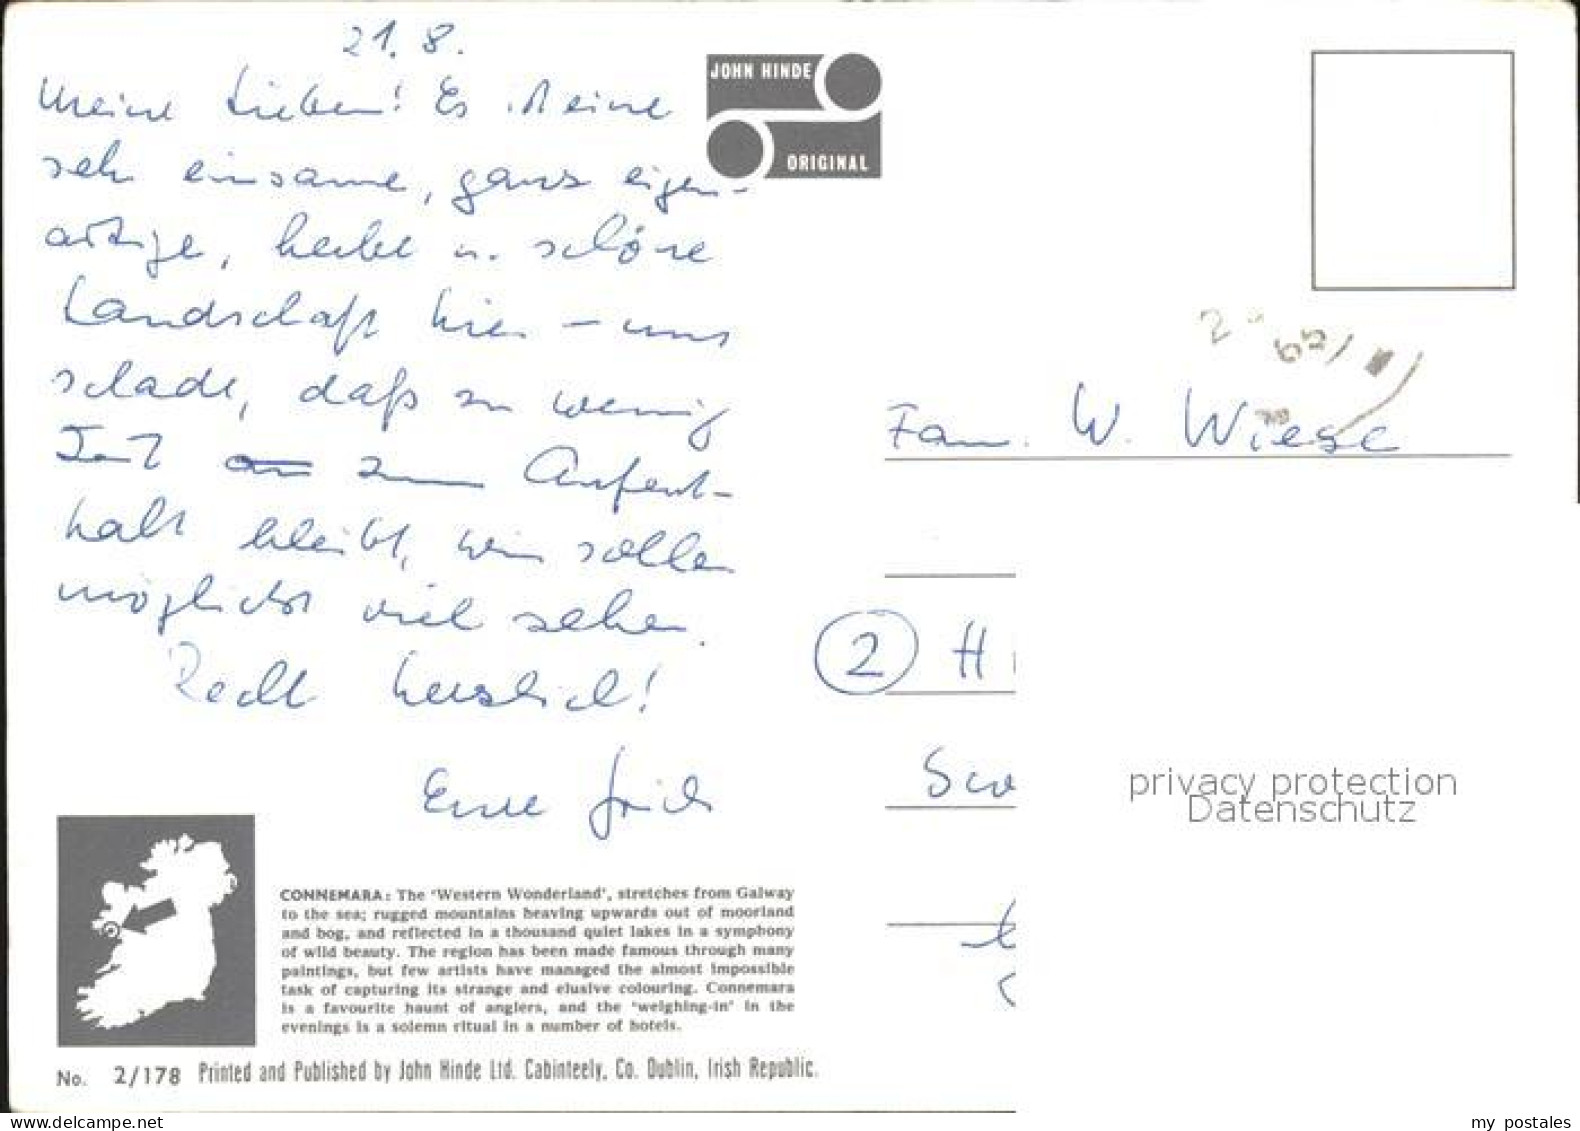 21. 8.
Meine Lieben! Es ist eine
sehr einsame, ganz eigen-
artige, herbe u. schöne
Landschaft hier – nur
schade, daß so wenig
Zeit zum Aufent-
halt bleibt, wir sollen
möglichst viel sehen.
Recht herzlich!
Eure
JOHN HINDE
ORIGINAL
Fam. W. Wiese
2 H
privacy protection
Datenschutz
CONNEMARA: The 'Western Wonderland', stretches from Galway
to the sea; rugged mountains heaving upwards out of moorland
and bog, and reflected in a thousand quiet lakes in a symphony
of wild beauty. The region has been made famous through many
paintings, but few artists have managed the almost impossible
task of capturing its strange and elusive colouring. Connemara
is a favourite haunt of anglers, and the 'weighing-in' in the
evenings is a solemn ritual in a number of hotels.
No. 2/178 Printed and Published by John Hinde Ltd. Cabinteely, Co. Dublin, Irish Republic.
www.delcampe.net
my postales